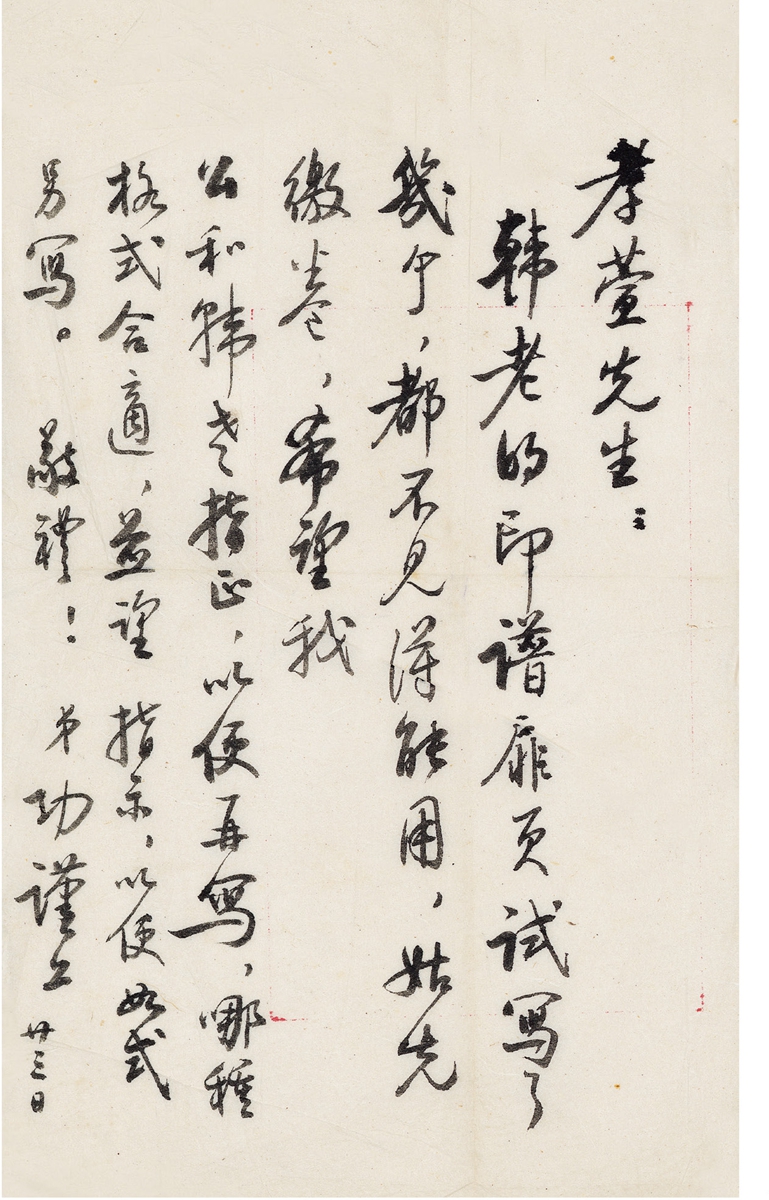 孝萱先生：
韩老的印譜扉页試寫了
幾个，都不見得能用，姑先
繳卷，希望我
公和韩老指正，以便再寫，哪種
格式合適，並望 指示，以便如式
另寫。 敬禮！ 弟功謹上 廿三日